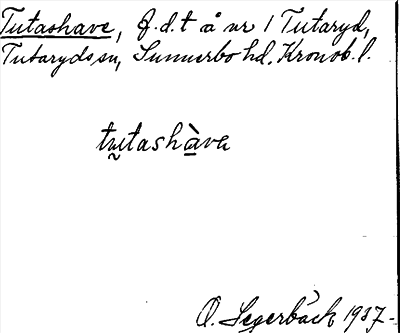 Tutashave, f.d.t å nr 1 Tutaryd,
Tutaryds sn, Sunnerbo hd, Kronob. l.
tutashàva
O. Segerbäck 1937-